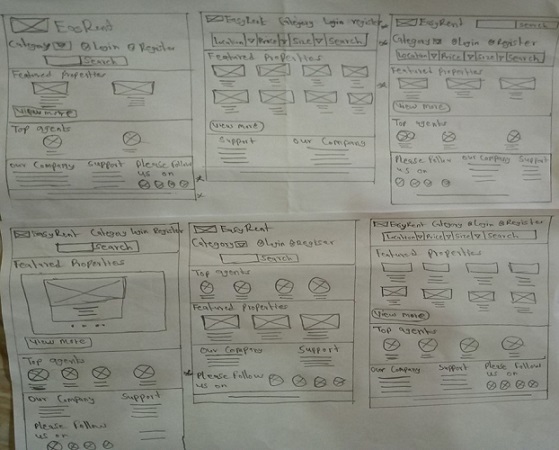 EasyRent
Category Login Register
Search
Featured Properties
View more
Top agents
Our Company Support Please follow
us on
EasyRent Category Login register
Location Price Size Search
Featured Properties
View more
Support Our Company
EasyRent Search
Category Login Register
Location Price Size Search
Featured Properties
View more
Top agents
Please follow Our Company Support
us on
EasyRent Category Login Register
Search
Featured Properties
View more
Top agents
Our Company Support
Please Follow
us on
EasyRent
Category Login Register
Search
Top agents
Featured Properties
Our Company Support
Please Follow
us on
EasyRent Category Login Register
Location Price Size Search
Featured Properties
View more
Top agents
Our Company Support Please Follow
us on